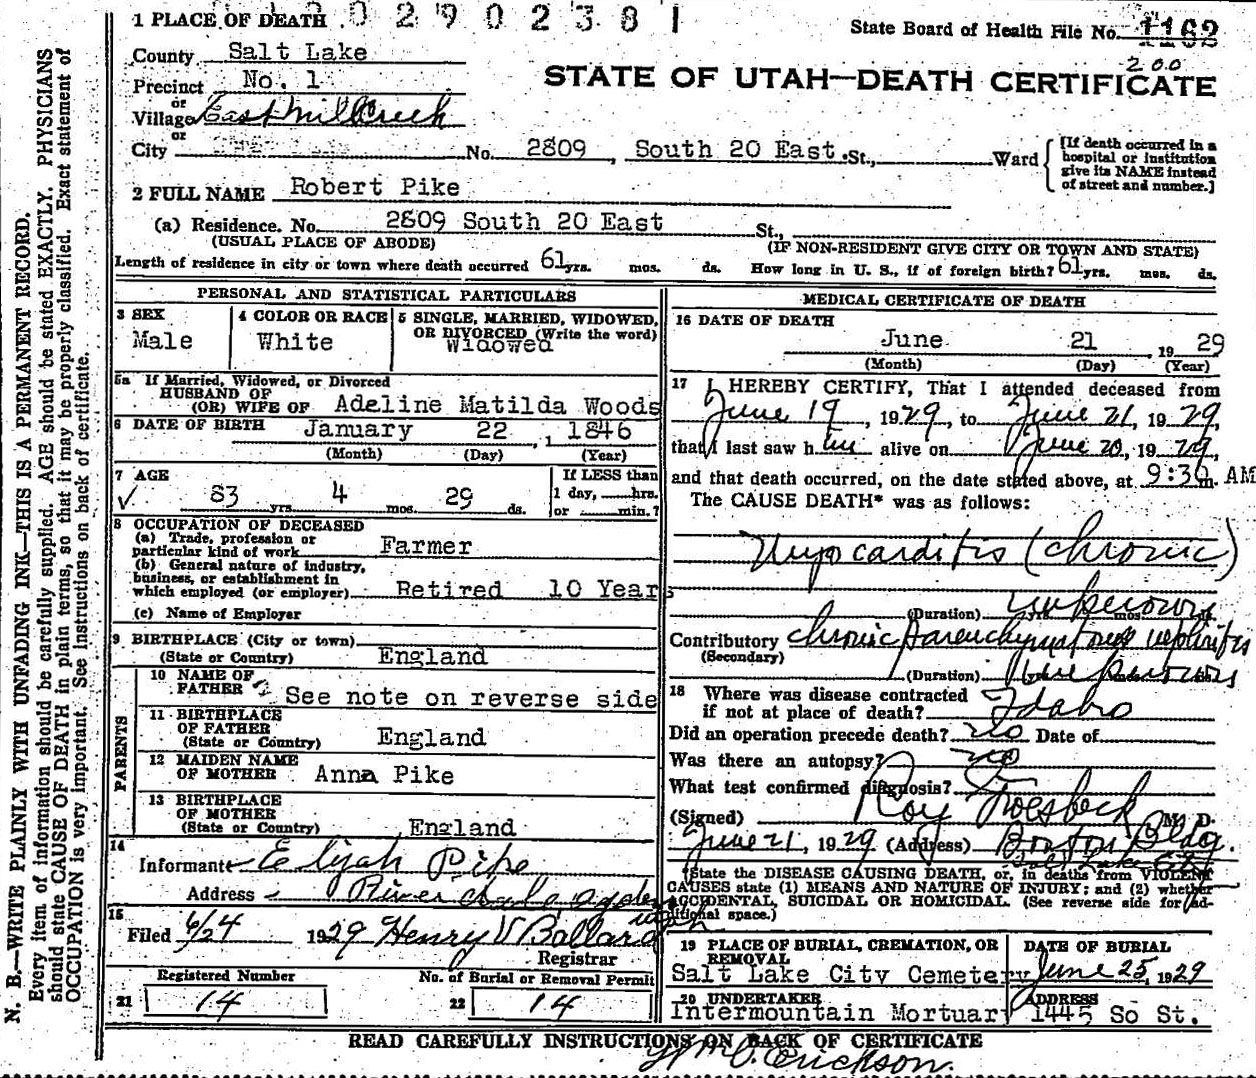 0 2 9 0 2 3 8 1
1 PLACE OF DEATH
State Board of Health File No. 1162
200
County Salt Lake
STATE OF UTAH—DEATH CERTIFICATE
Precinct No. 1
or
Village East Mill Creek
or
City No. 2809, South 20 East St., Ward
[If death occurred in a hospital or institution give its NAME instead of street and number.]
2 FULL NAME Robert Pike
(a) Residence. No. 2809 South 20 East St.,
(USUAL PLACE OF ABODE) (IF NON-RESIDENT GIVE CITY OR TOWN AND STATE)
Length of residence in city or town where death occurred 61 yrs. mos. ds. How long in U. S., if of foreign birth? 61 yrs. mos. ds.
PERSONAL AND STATISTICAL PARTICULARS
3 SEX
Male
4 COLOR OR RACE
White
5 SINGLE, MARRIED, WIDOWED,
OR DIVORCED (Write the word)
Widowed
5a If Married, Widowed, or Divorced
HUSBAND OF
(OR) WIFE OF Adeline Matilda Woods
6 DATE OF BIRTH January 22, 1846
(Month) (Day) (Year)
7 AGE
83 yrs. 4 mos. 29 ds.
If LESS than
1 day, hrs.
or min.?
8 OCCUPATION OF DECEASED
(a) Trade, profession or
particular kind of work Farmer
(b) General nature of industry,
business, or establishment in
which employed (or employer) Retired 10 Years
(c) Name of Employer
9 BIRTHPLACE (City or town)
(State or Country) England
PARENTS
10 NAME OF
FATHER See note on reverse side
11 BIRTHPLACE
OF FATHER
(State or Country) England
12 MAIDEN NAME
OF MOTHER Anna Pike
13 BIRTHPLACE
OF MOTHER
(State or Country) England
14
Informant Elijah Pike
Address Riverdale Ogden
Utah
15
Filed 6/24 1929 Henry V Ballard
Registrar
Registered Number
21 14
No. of Burial or Removal Permit
22 14
MEDICAL CERTIFICATE OF DEATH
16 DATE OF DEATH
June 21, 1929
(Month) (Day) (Year)
17 I HEREBY CERTIFY, That I attended deceased from
June 19, 1929, to June 21, 1929,
that I last saw him alive on June 20, 1929,
and that death occurred, on the date stated above, at 9:30 m. AM
The CAUSE DEATH* was as follows:
Myocarditis (chronic)
(Duration) unknown
Contributory chronic parenchymatous nephritis
(Secondary)
(Duration) unknown
18 Where was disease contracted
if not at place of death? Idaho
Did an operation precede death? no Date of
Was there an autopsy? no
What test confirmed diagnosis?
(Signed) Roy Groesbeck M. D.
June 21, 1929 (Address) Boston Bldg.
Salt Lake City
*State the DISEASE CAUSING DEATH, or, in deaths from VIOLENT
CAUSES state (1) MEANS AND NATURE OF INJURY; and (2) whether
ACCIDENTAL, SUICIDAL OR HOMICIDAL. (See reverse side for ad-
ditional space.)
19 PLACE OF BURIAL, CREMATION, OR
REMOVAL
Salt Lake City Cemetery
DATE OF BURIAL
June 25, 1929
20 UNDERTAKER
Intermountain Mortuary
ADDRESS
1445 So St.
READ CAREFULLY INSTRUCTIONS ON BACK OF CERTIFICATE
Wm O. Erickson.
N. B.—WRITE PLAINLY WITH UNFADING INK—THIS IS A PERMANENT RECORD.
Every item of information should be carefully supplied. AGE should be stated EXACTLY. PHYSICIANS
should state CAUSE OF DEATH in plain terms, so that it may be properly classified. Exact statement of
OCCUPATION is very important. See instructions on back of certificate.